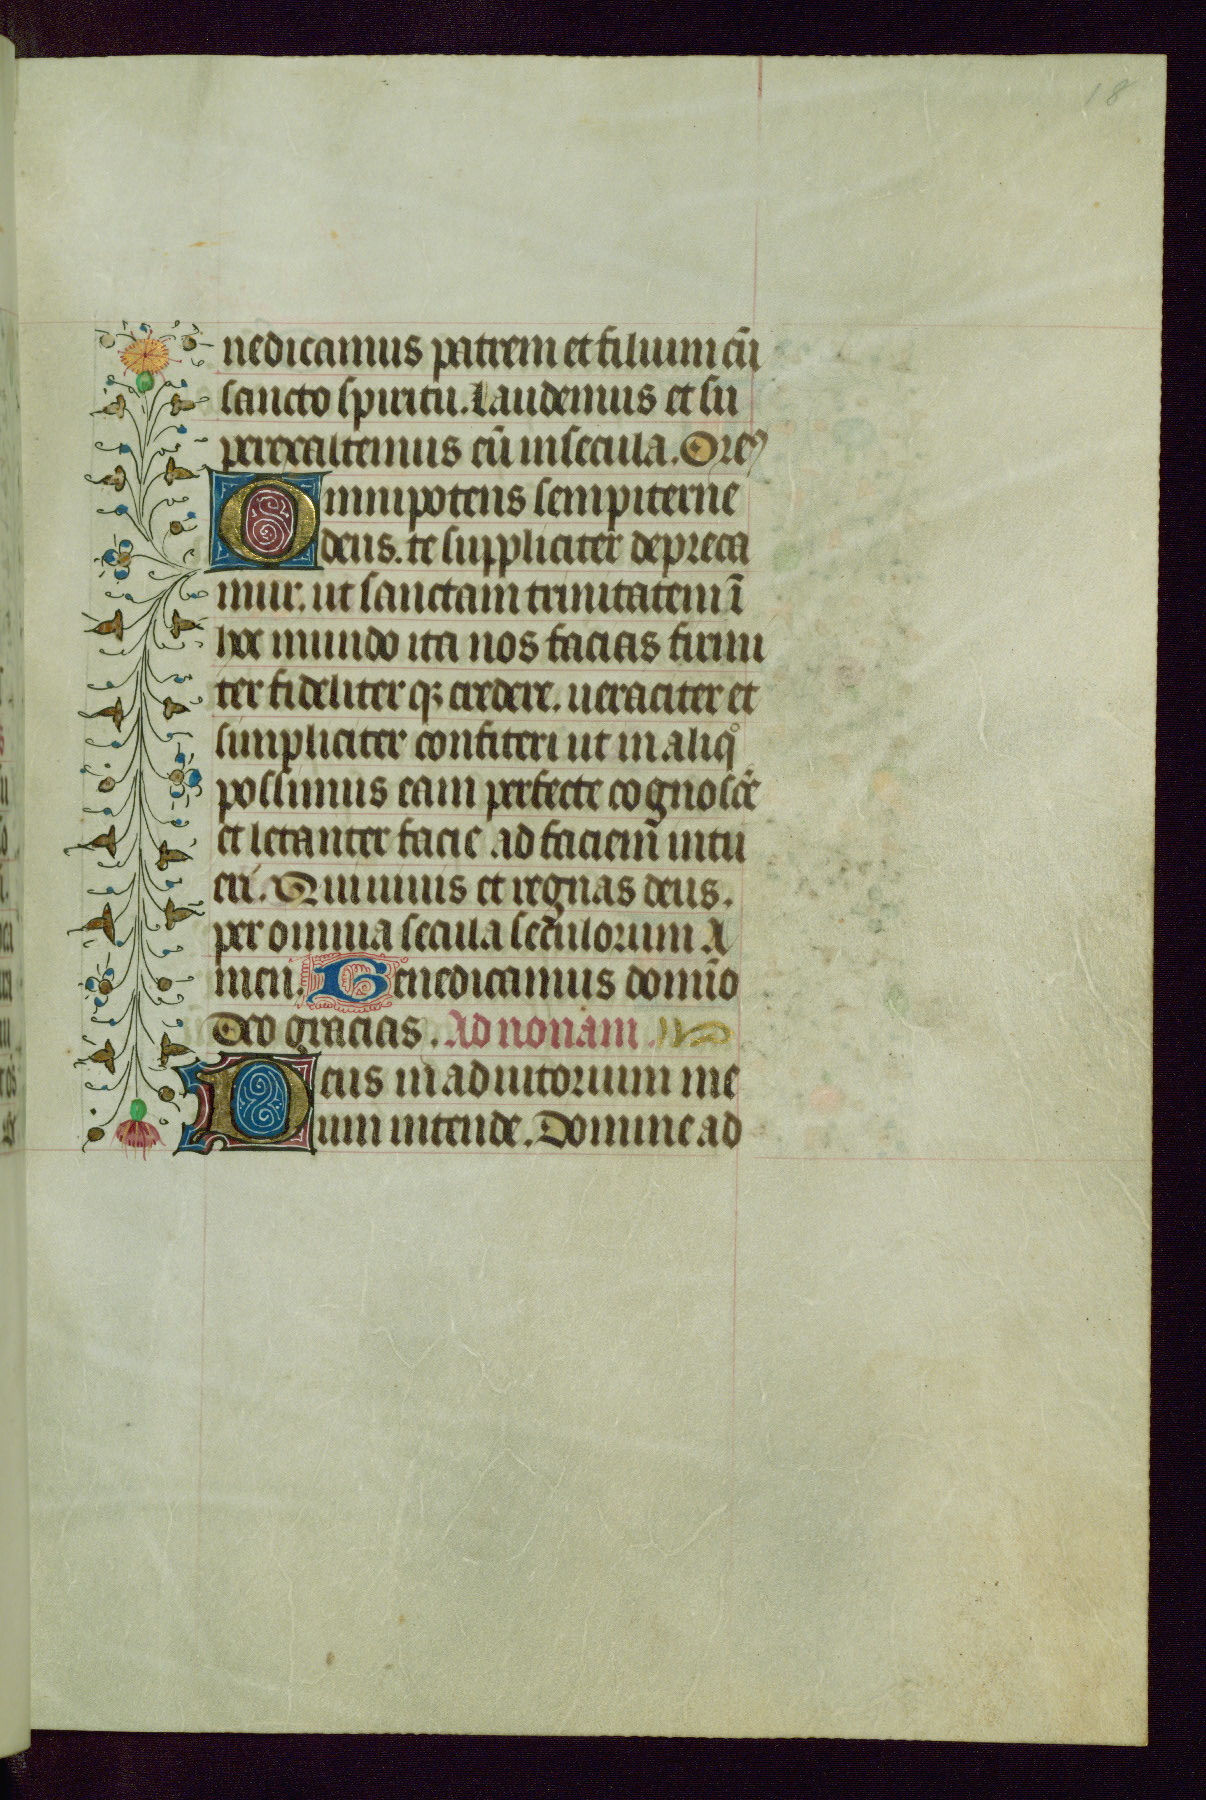 18
nedicamus patrem et filium cū
sancto spiritu. Laudemus et su
perexaltemus eū in secula. Oreꝰ
Omnipotens sempiterne
deus. te suppliciter depreca
mur. ut sanctam trinitatem ī
hoc mundo ita nos facias firmi
ter fideliter qꝫ credere. ueraciter et
simpliciter confiteri ut in aliqͦ
possimus eam perfecte cognosce᷑
et letanter facie ad faciem̄ intu
eri. Qui uiuis et regnas deus.
per omnia secula seculorum A
men. Benedicamus domīo
Deo gracias. Ad nonam.
Deus in adiutorium me
um intende. Domine ad